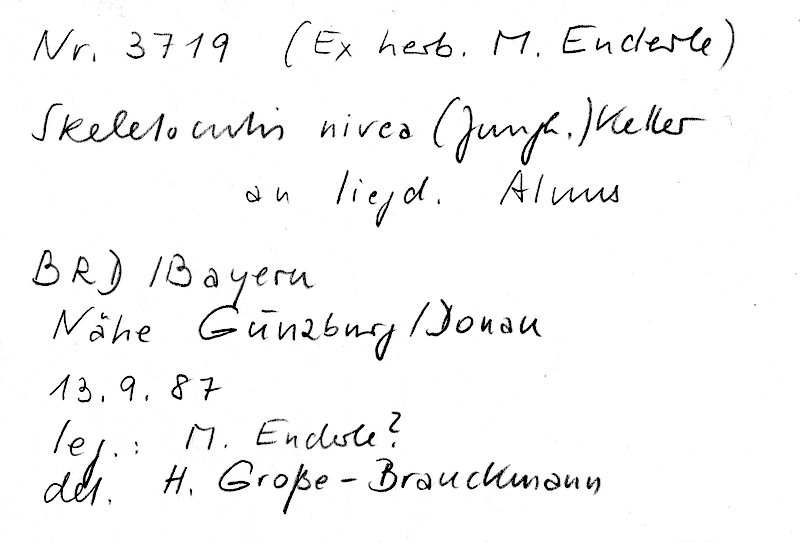 Nr. 3719 (Ex herb. M. Enderle)
Skeletocutis nivea (Jungh.) Keller
an liegd. Alnus
BRD / Bayern
Nähe Günzburg / Donau
13.9.87
leg.: M. Enderle?
det. H. Große-Brauckmann